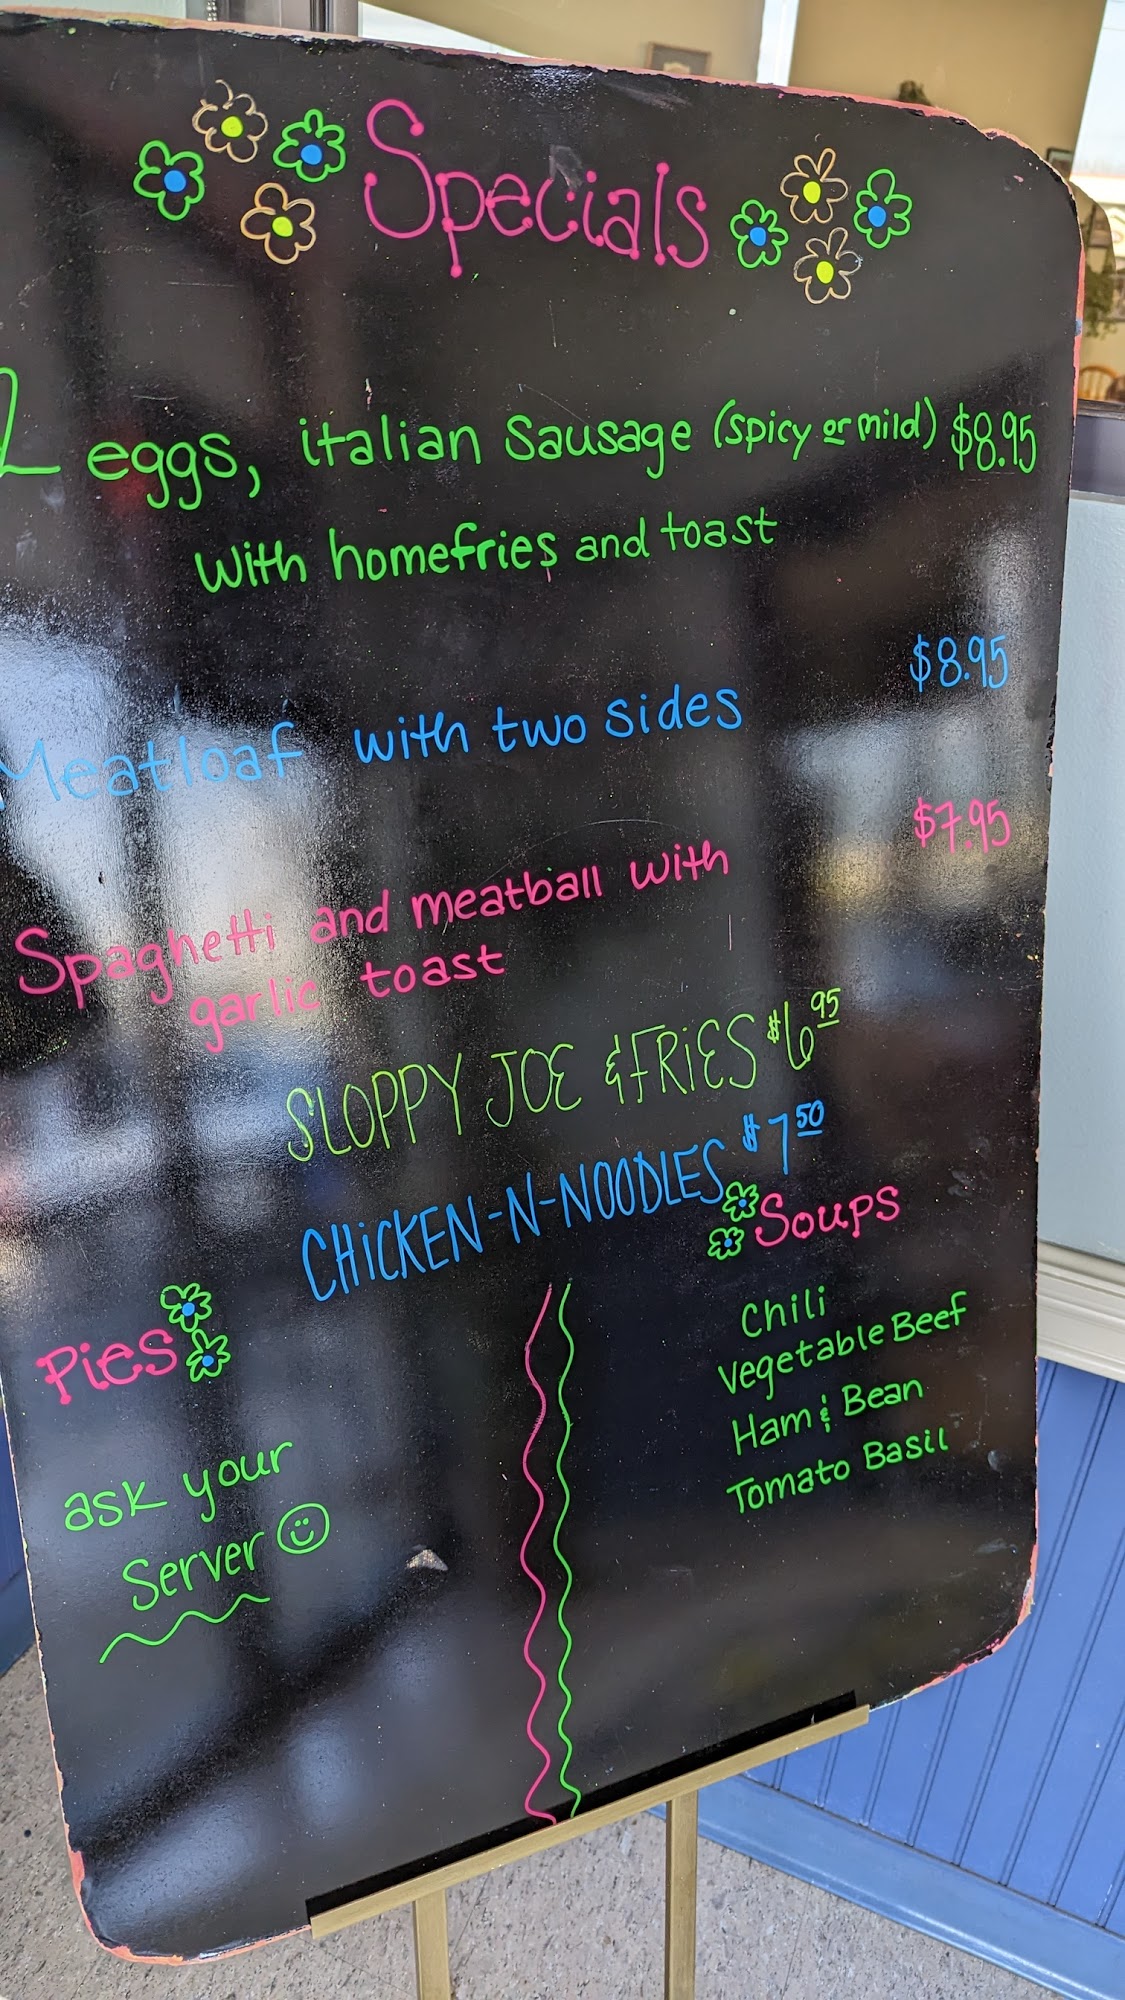 Specials
2 eggs, italian sausage (spicy or mild) $8.95
with homefries and toast
Meatloaf with two sides $8.95
Spaghetti and meatball with $7.95
garlic toast
SLOPPY JOE & FRIES $6.95
CHICKEN-N-NOODLES $7.50
Pies
ask your
Server
Soups
Chili
Vegetable Beef
Ham & Bean
Tomato Basil